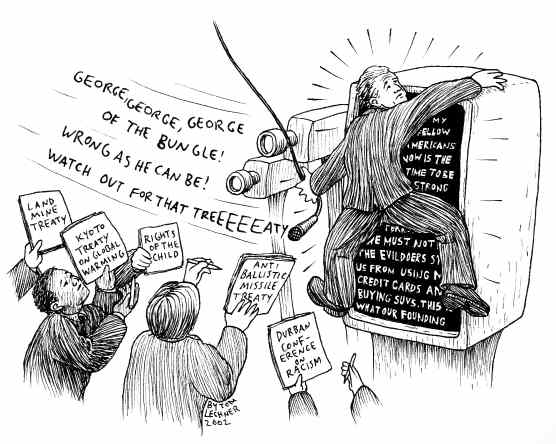 GEORGE, GEORGE, GEORGE
OF THE BUNGLE!
WRONG AS HE CAN BE!
WATCH OUT FOR THAT TREEEEEATY
LAND
MINE
TREATY
KYOTO
TREATY
ON GLOBAL
WARMING
RIGHTS
OF THE
CHILD
ANTI
BALLISTIC
MISSILE
TREATY
DURBAN
CONF-
ERENCE
ON
RACISM
MY
FELLOW
AMERICANS
NOW IS THE
TIME TO BE
STRONG
TERR
WE MUST NOT
THE EVILDOERS ST
US FROM USING
CREDIT CARDS AN
BUYING SUVS. THIS
WHAT OUR FOUNDING
BY
LECHNER
2002